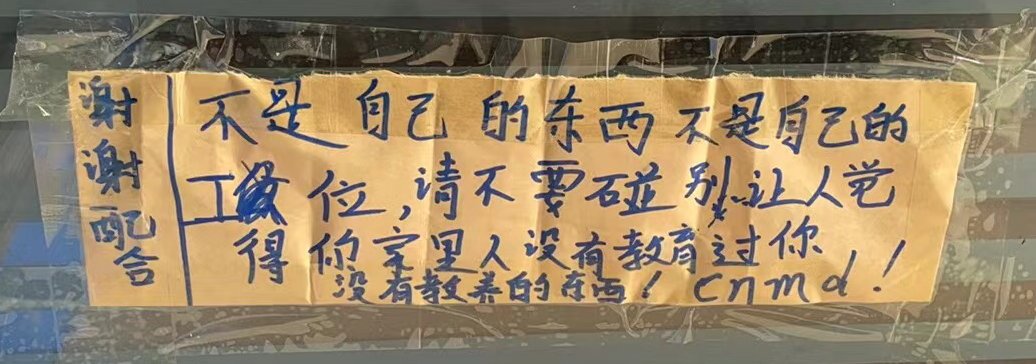 谢谢配合
不是自己的东西不是自己的
工位,请不要碰别让人觉
得你家里人没有教育过你
没有教养的东西!cnmd!